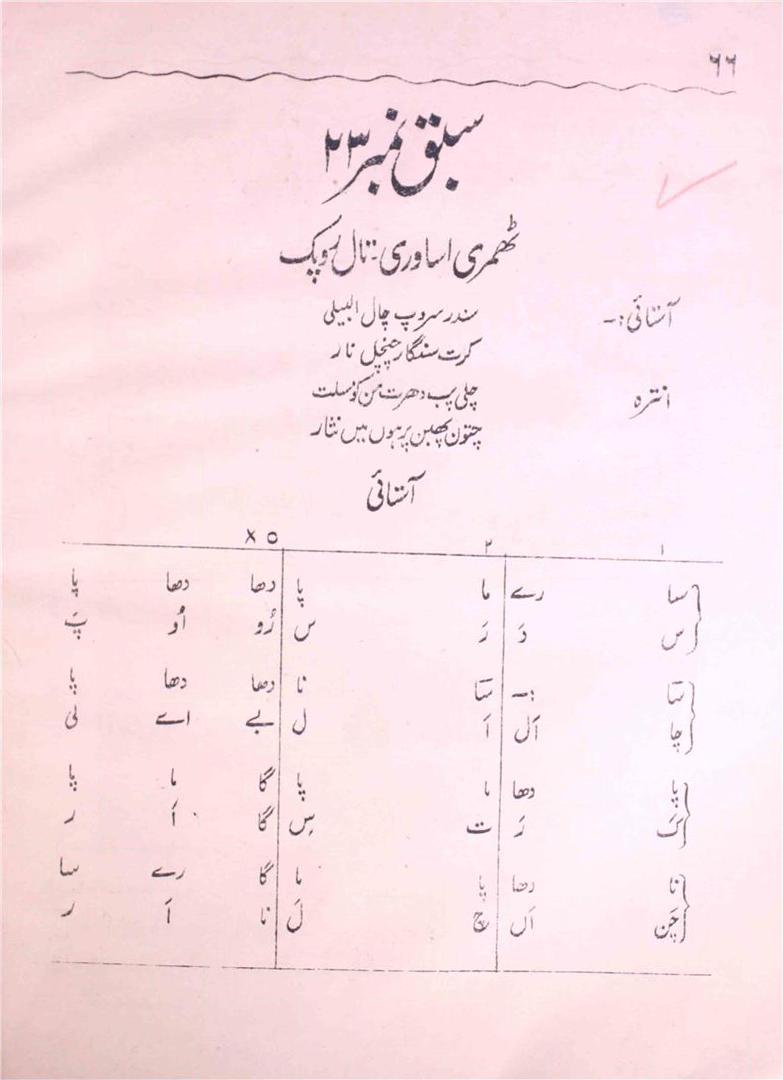 ۶۶
سبق نمبر ۲۳
ٹھمری اساوری:۔ تال روپک
آستائی:۔ سندر سروپ چال البیلی
کرت سنگار چنچل نار
انترہ چلی پب دھرت من کو مسلت
چتون پھبن پر ہوں میں نثار
آستائی
۱ ۲ ٥ x
سا رے ما پا دھا دھا پا
س دَ رَ س رُو اُو پَ
سآ :۔ سآ نا دھا دھا پا
چا اَل اَ ل بے اے لی
پا دھا ما پا گا ما پا
ک رَ ت سِں گا اَ ر
نا دھا پا ما گا رے سا
چَن اَں چ لَ نا اَ ر